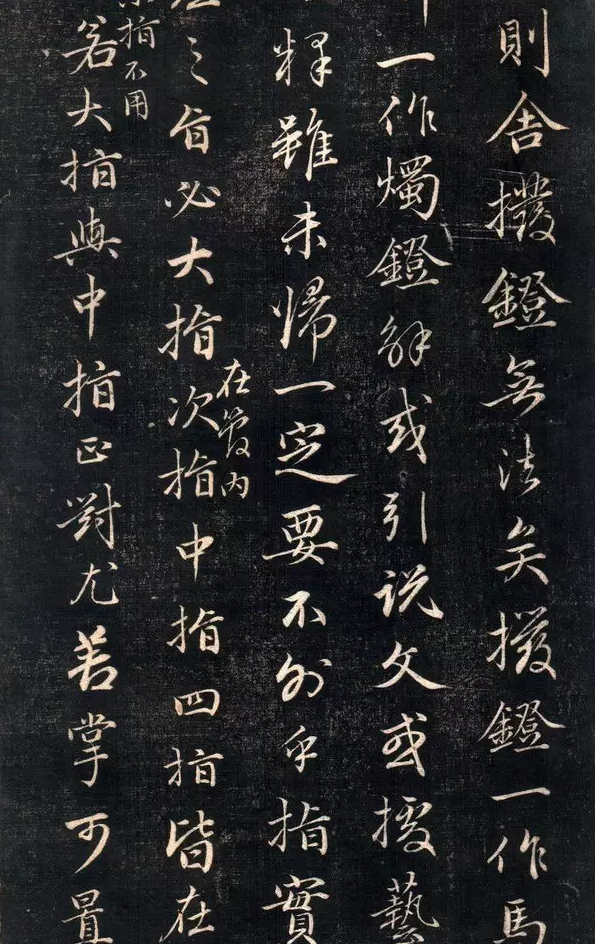 則舍撥鐙無法矣撥鐙一作馬
一作燭鐙解或引説文或援藝
釋雖未歸一定要不外乎指實
之旨必大指次指在管内中指四指皆在
指不用
若大指與中指正對尤善掌可置